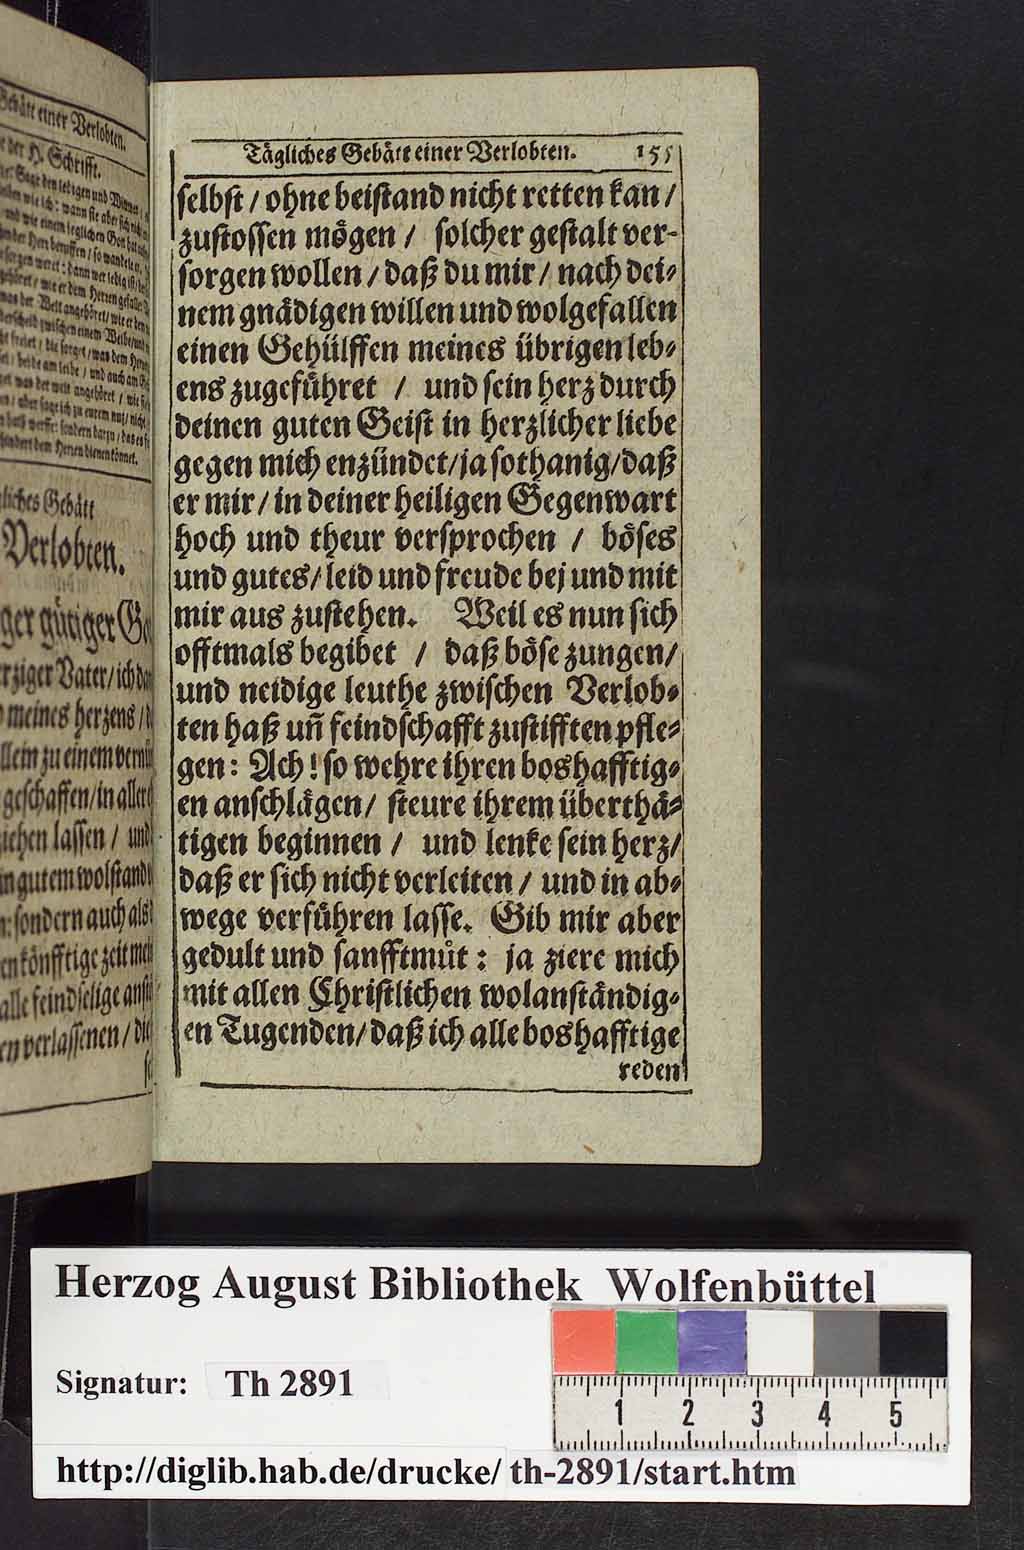 Gebätt einer Verlobten.
der H. Schrifft.
liches Gebätt
Verlobten.
ger gütiger
rziger Vater/ ich
meines herzens /
llein zu einem
geschaffen/ in
iehen lassen / und
in gutem wolstand
n: sondern auch als
en könfftige zeit
alle feindselige
en verlassenen /
Tägliches Gebätt einer Verlobten. 155
selbst / ohne beistand nicht retten kan /
zustossen mögen / solcher gestalt ver-
sorgen wollen / daß du mir / nach dei-
nem gnädigen willen und wolgefallen
einen Gehülffen meines übrigen leb-
ens zugeführet / und sein herz durch
deinen guten Geist in herzlicher liebe
gegen mich enzündet/ ja sothanig/ daß
er mir / in deiner heiligen Gegenwart
hoch und theur versprochen / böses
und gutes/ leid und freude bej und mit
mir aus zustehen. Weil es nun sich
offtmals begibet / daß böse zungen/
und neidige leuthe zwischen Verlob-
ten haß uñ feindschafft zustifften pfle-
gen: Ach! so wehre ihren boshafftig-
en anschlägen/ steure ihrem überthä-
tigen beginnen / und lenke sein herz/
daß er sich nicht verleiten / und in ab-
wege verführen lasse. Gib mir aber
gedult und sanfftmůt: ja ziere mich
mit allen Christlichen wolanständig-
en Tugenden/ daß ich alle boshafftige
reden
Herzog August Bibliothek Wolfenbüttel
Signatur: Th 2891
1 2 3 4 5
http://diglib.hab.de/drucke/ th-2891/start.htm